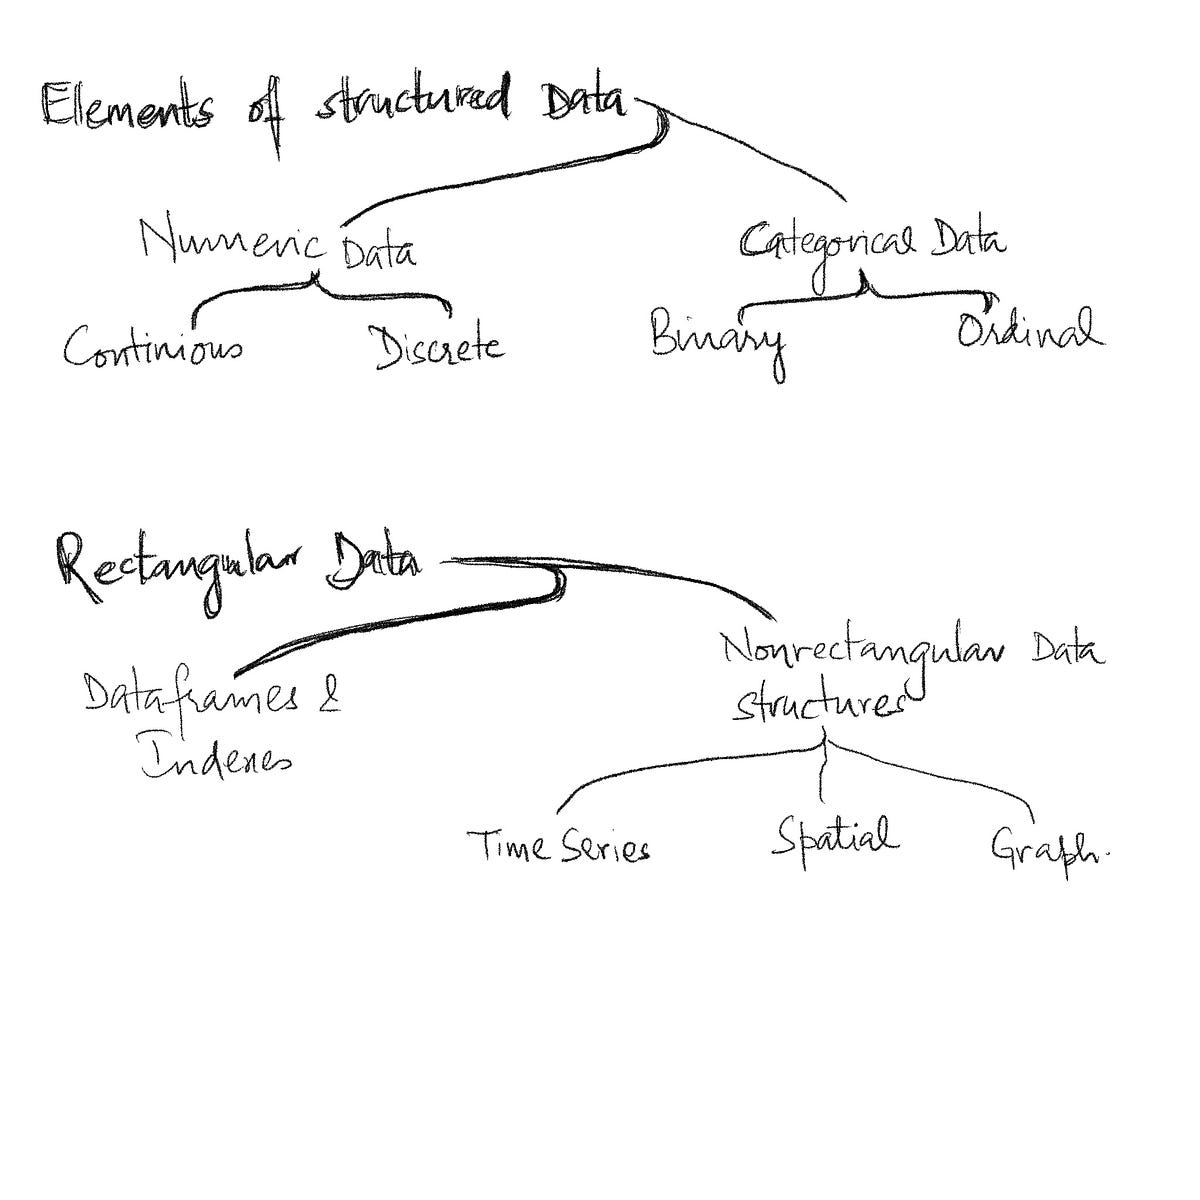 Elements of structured Data
Numeric Data
Categorical Data
Continious
Discrete
Binary
Ordinal
Rectangular Data
Dataframes &
Indexes
Nonrectangular Data
structures
Time Series
Spatial
Graph.